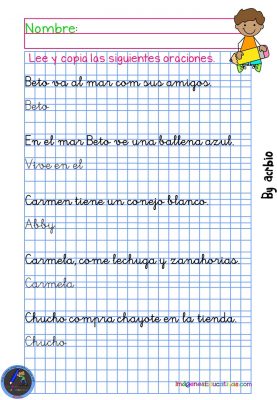 Nombre:
Lee y copia las siguientes oraciones.
Beto va al mar com sus amigos.
Beto
En el mar Beto ve una ballena azul.
Vive en el
Carmen tiene un conejo blanco.
Abby
Carmela, come lechuga y zanahorias.
Carmela
Chucho compra chayote en la tienda.
Chucho
By acrbio
ImágenesEducativas.com